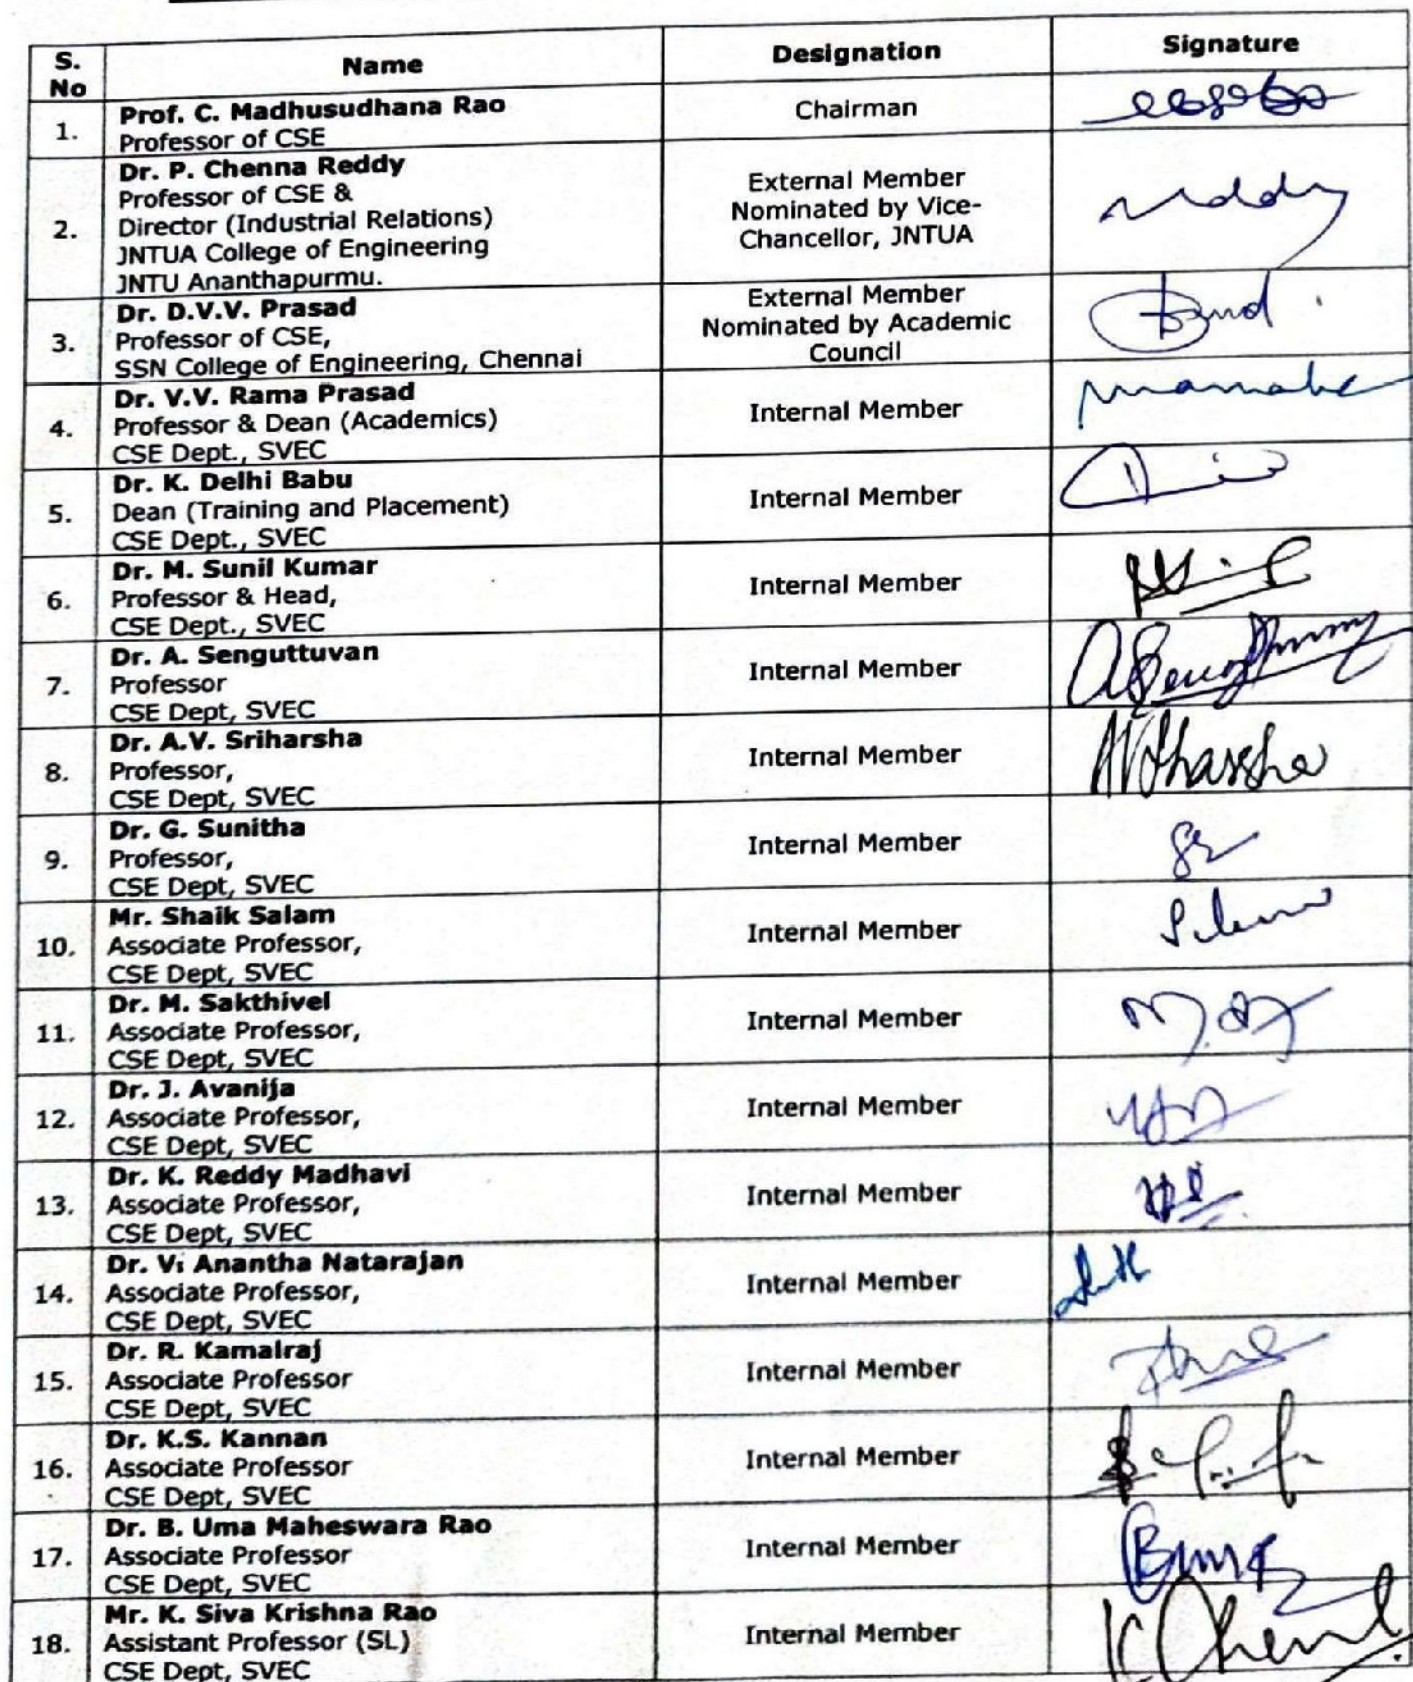 S. No	Name	Designation	Signature
1.	Prof. C. Madhusudhana Rao	Chairman
Professor of CSE
2.	Dr. P. Chenna Reddy
Professor of CSE &
Director (Industrial Relations)
JNTUA College of Engineering
JNTU Ananthapurmu.
External Member
Nominated by Vice-
Chancellor, JNTUA
3.	Dr. D.V.V. Prasad
Professor of CSE,
SSN College of Engineering, Chennai
External Member
Nominated by Academic
Council
4.	Dr. V.V. Rama Prasad
Professor & Dean (Academics)
CSE Dept., SVEC
Internal Member
5.	Dr. K. Delhi Babu
Dean (Training and Placement)
CSE Dept., SVEC
Internal Member
6.	Dr. M. Sunil Kumar
Professor & Head,
CSE Dept., SVEC
Internal Member
7.	Dr. A. Senguttuvan
Professor
CSE Dept, SVEC
Internal Member
8.	Dr. A.V. Sriharsha
Professor,
CSE Dept, SVEC
Internal Member
9.	Dr. G. Sunitha
Professor,
CSE Dept, SVEC
Internal Member
10.	Mr. Shaik Salam
Associate Professor,
CSE Dept, SVEC
Internal Member
11.	Dr. M. Sakthivel
Associate Professor,
CSE Dept, SVEC
Internal Member
12.	Dr. J. Avanija
Associate Professor,
CSE Dept, SVEC
Internal Member
13.	Dr. K. Reddy Madhavi
Associate Professor,
CSE Dept, SVEC
Internal Member
14.	Dr. V. Anantha Natarajan
Associate Professor,
CSE Dept, SVEC
Internal Member
15.	Dr. R. Kamalraj
Associate Professor
CSE Dept, SVEC
Internal Member
16.	Dr. K.S. Kannan
Associate Professor
CSE Dept, SVEC
Internal Member
17.	Dr. B. Uma Maheswara Rao
Associate Professor
CSE Dept, SVEC
Internal Member
18.	Mr. K. Siva Krishna Rao
Assistant Professor (SL)
CSE Dept, SVEC
Internal Member